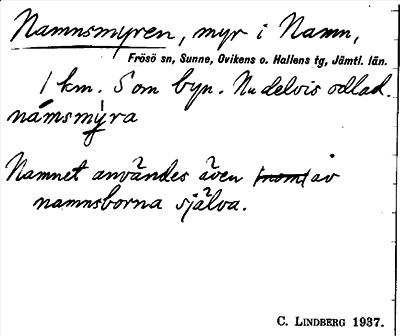 Namnsmyren, myr i Namn,
Frösö sn, Sunne, Ovikens o. Hallens tg, Jämtl. län.
1 km. S om byn. Nu delvis odlad.
námsmỳra
Namnet användes även av
namnsborna själva.
C. LINDBERG 1937.